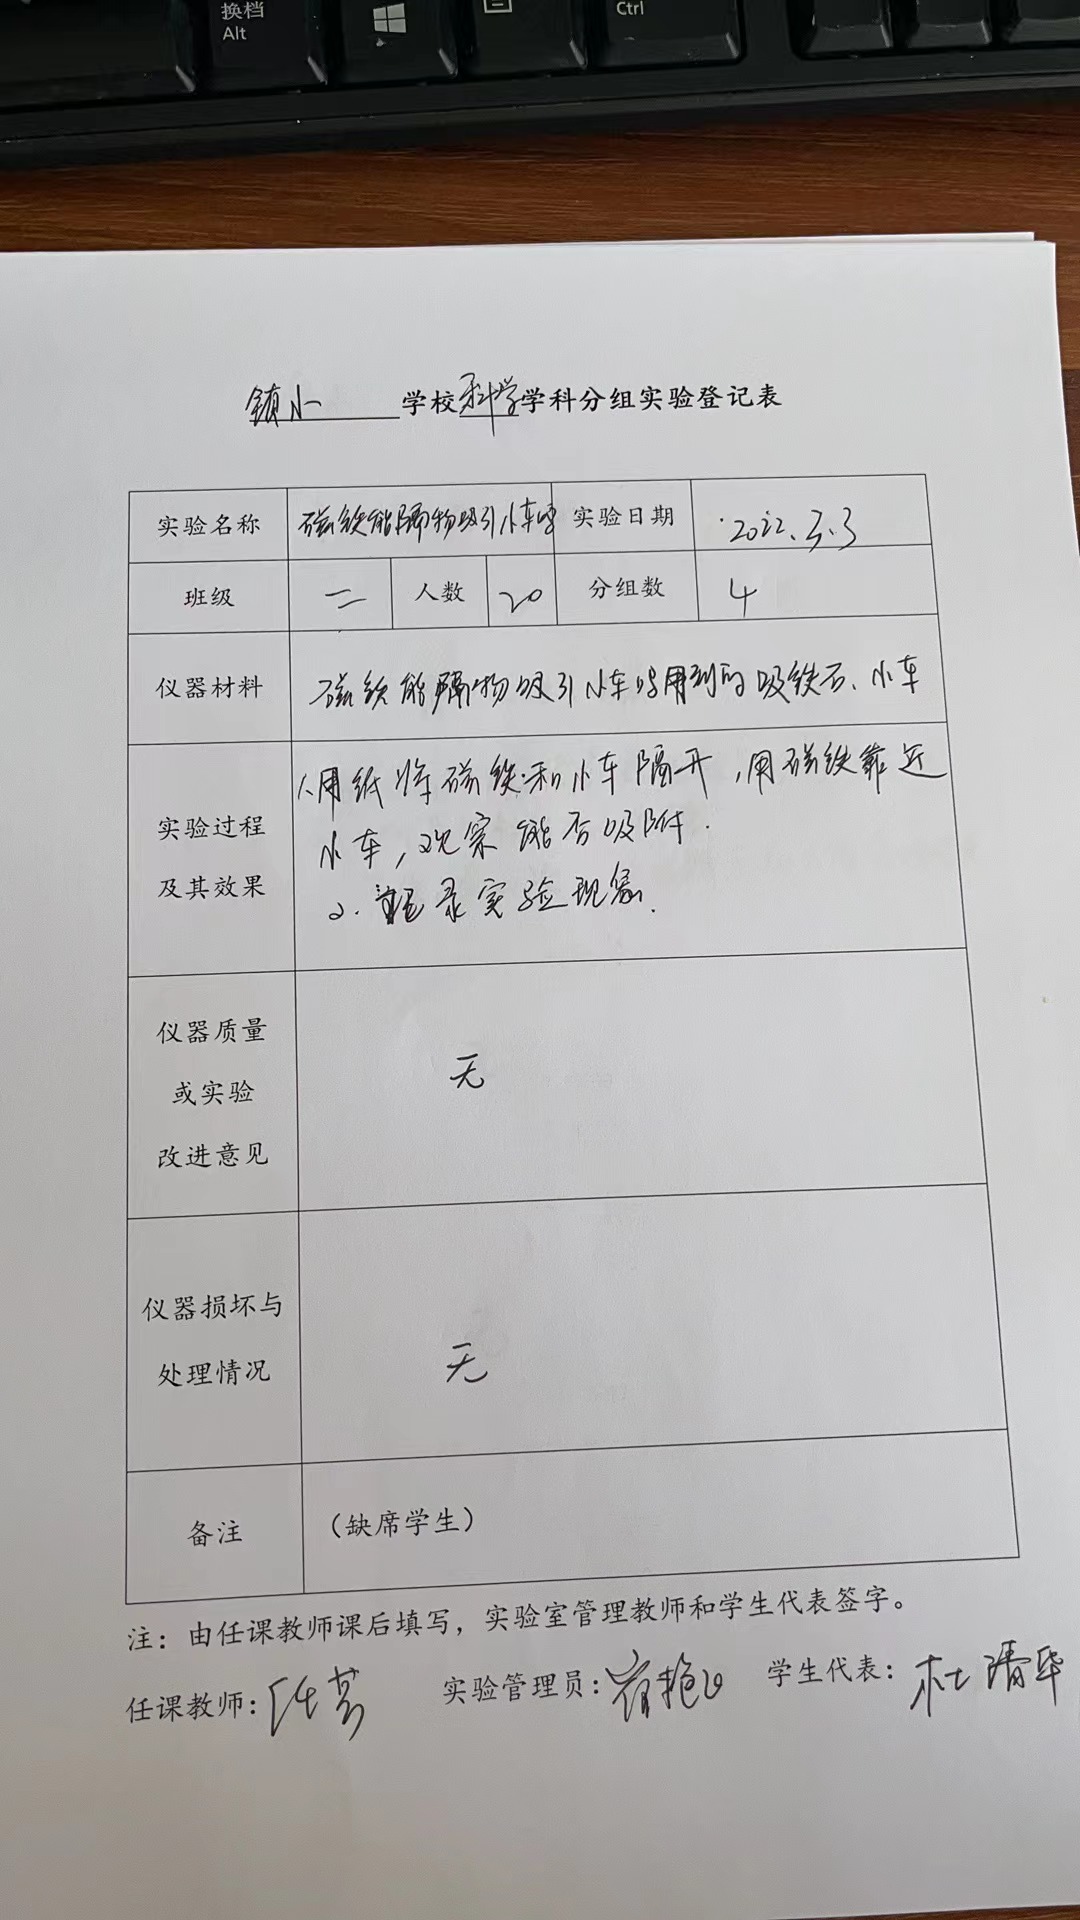 换档
Alt
Ctrl
镇小 学校科学学科分组实验登记表
实验名称 磁铁能隔物吸引小车吗 实验日期 2022.3.3
班级 二 人数 20 分组数 4
仪器材料 磁铁能隔物吸引小车吗用到的吸铁石、小车
实验过程
及其效果
1.用纸将磁铁和小车隔开,用磁铁靠近
小车,观察能否吸附.
2. 录实验现象.
仪器质量
或实验
改进意见
无
仪器损坏与
处理情况
无
备注 (缺席学生)
注:由任课教师课后填写,实验室管理教师和学生代表签字。
任课教师: 实验管理员: 学生代表:杜清华